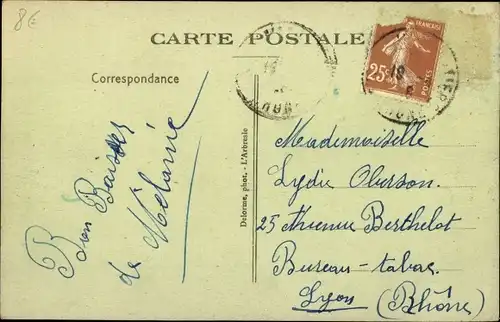 8€
CARTE POSTALE
FRANÇAISE
25c
POSTES
Correspondance
Bon Baiser
de Mélanie
Delorme, phot. - L'Arbresle
Mademoiselle
Lydie Oberson.
25 Avenue Berthelot
Bureau-tabac
Lyon (Rhône)